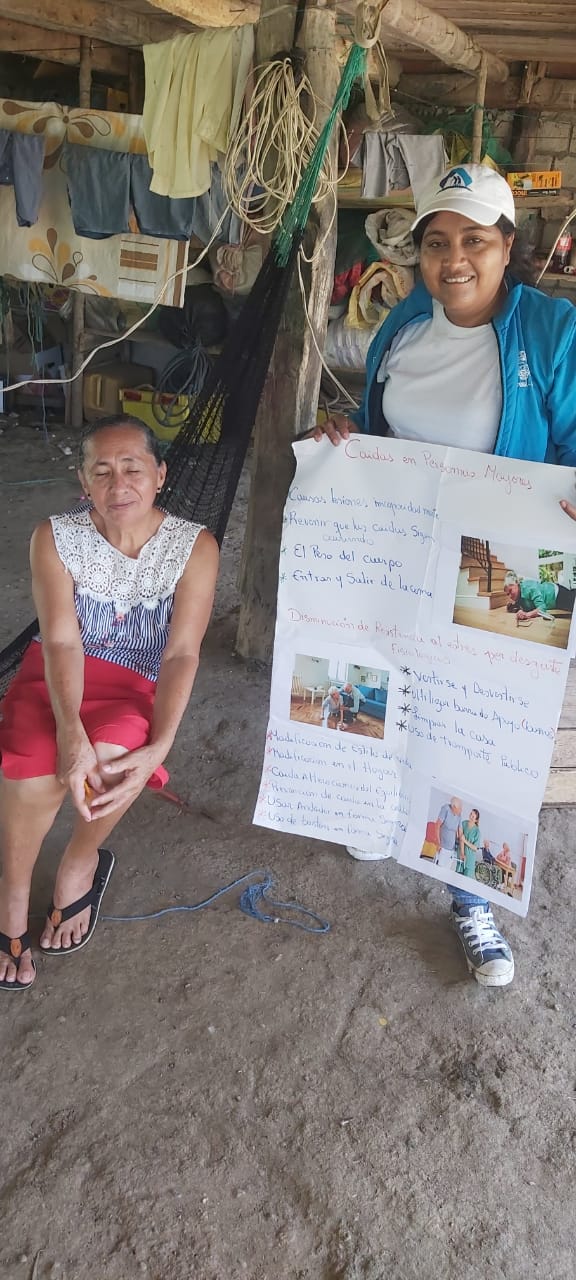 Caidas en Personas Mayores
Causas lesiones incapacidad
Prevenir que las caidas Sigan
* El Peso del cuerpo
* Entrar y Salir de la cama
Disminución de Resistencia al estres por desgaste
Fisiologico
* Vestirse y Desvestirse
* utilizar barra de Apoyo (baños)
* limpiar la casa
* uso de transporte Publico
* Modificacion de Estilo de vida
* Modificacion en el Hogar
* Caida Alteraciones del equilibrio
* Prevencion de caida en la
* Usar Andador en forma Segura
* Uso de baston en forma Segura